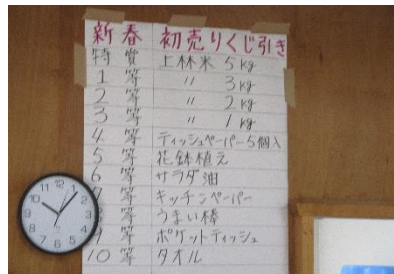 新春 初売りくじ引き
特賞 上林米 5kg
1等 〃 3kg
2等 〃 2kg
3等 〃 1kg
4等 ティッシュペーパー5個入
5等 花鉢植え
6等 サラダ油
7等 キッチンペーパー
8等 うまい棒
9等 ポケットティッシュ
10等 タオル
12
1
2
3
4
5
6
7
8
9
10
11